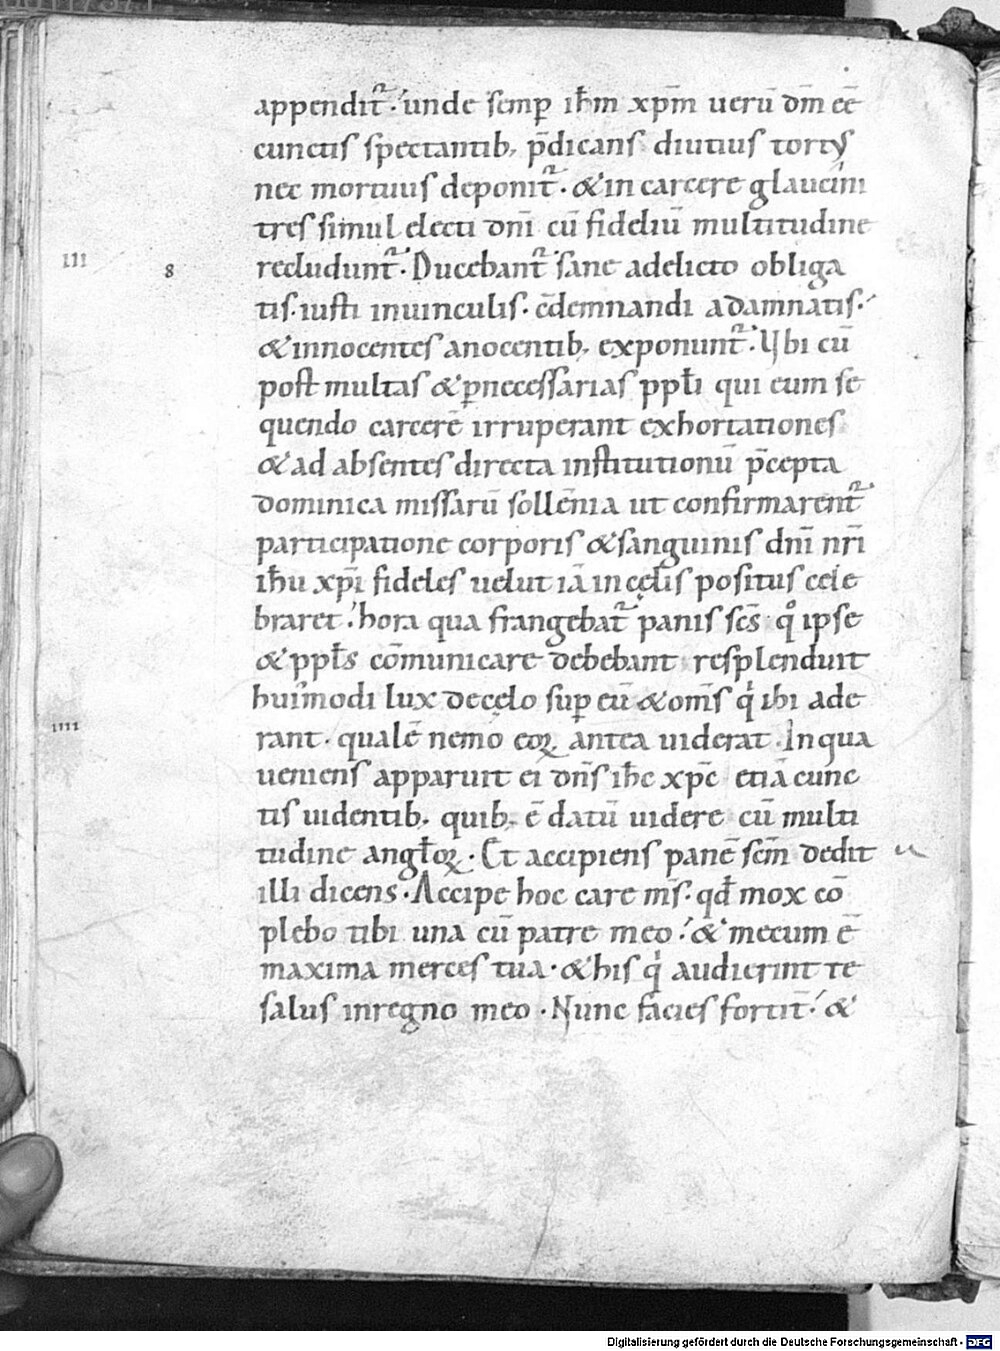 appendit᷑. unde semp̲ ih̅m xp̅m ueru̅ dm̅ ee̅
cunctis spectantib; p̅dicans diutius tortꝰ
nec mortuus deponit᷑. & in carcere glaucini
tres simul electi dn̅i cu̅ fideliu̅ multitudine
III 8 recludunt᷑. Ducebant᷑ sane adelicto obliga
tis. iusti inuinculis. c̅demnandi adamnatis.
& innocentes anocentib; exponunt᷑. Ubi cu̅
post multas & p̲necessarias ppl̅i qui eum se
quendo carcere̅ irruperant exhortationes
& ad absentes directa institutionu̅ p̅cepta
dominica missaru̅ solle̅nia ut confirmarent᷑
participatione corporis & sanguinis dn̅i nr̅i
ih̅u xp̅i fideles uelut ia̅ in cęlis positus cele
braret. hora qua frangebat᷑ panis sc̅s qͦ ipse
& ppl̅s co̅municare debebant resplenduit
hui᾽modi lux decęlo sup̲ eu̅ & om̅s qͥ ibi ade
IIII rant. quale̅ nemo eoꝝ antea uiderat. In qua
ueniens apparuit ei dn̅s ih̅c xp̅c etia̅ cunc
tis uidentib; quib; e̅ datu̅ uidere cu̅ multi
tudine angl̅oꝝ. Et accipiens pane̅ sc̅m dedit
illi dicens. Accipe hoc care m̅s. qd̅ mox co̅
plebo tibi una cu̅ patre meo. & mecum e̅
maxima merces tua. & his qͥ audierint te
salus inregno meo. Nunc facies fortit̅. &
Digitalisierung gefördert durch die Deutsche Forschungsgemeinschaft - DFG